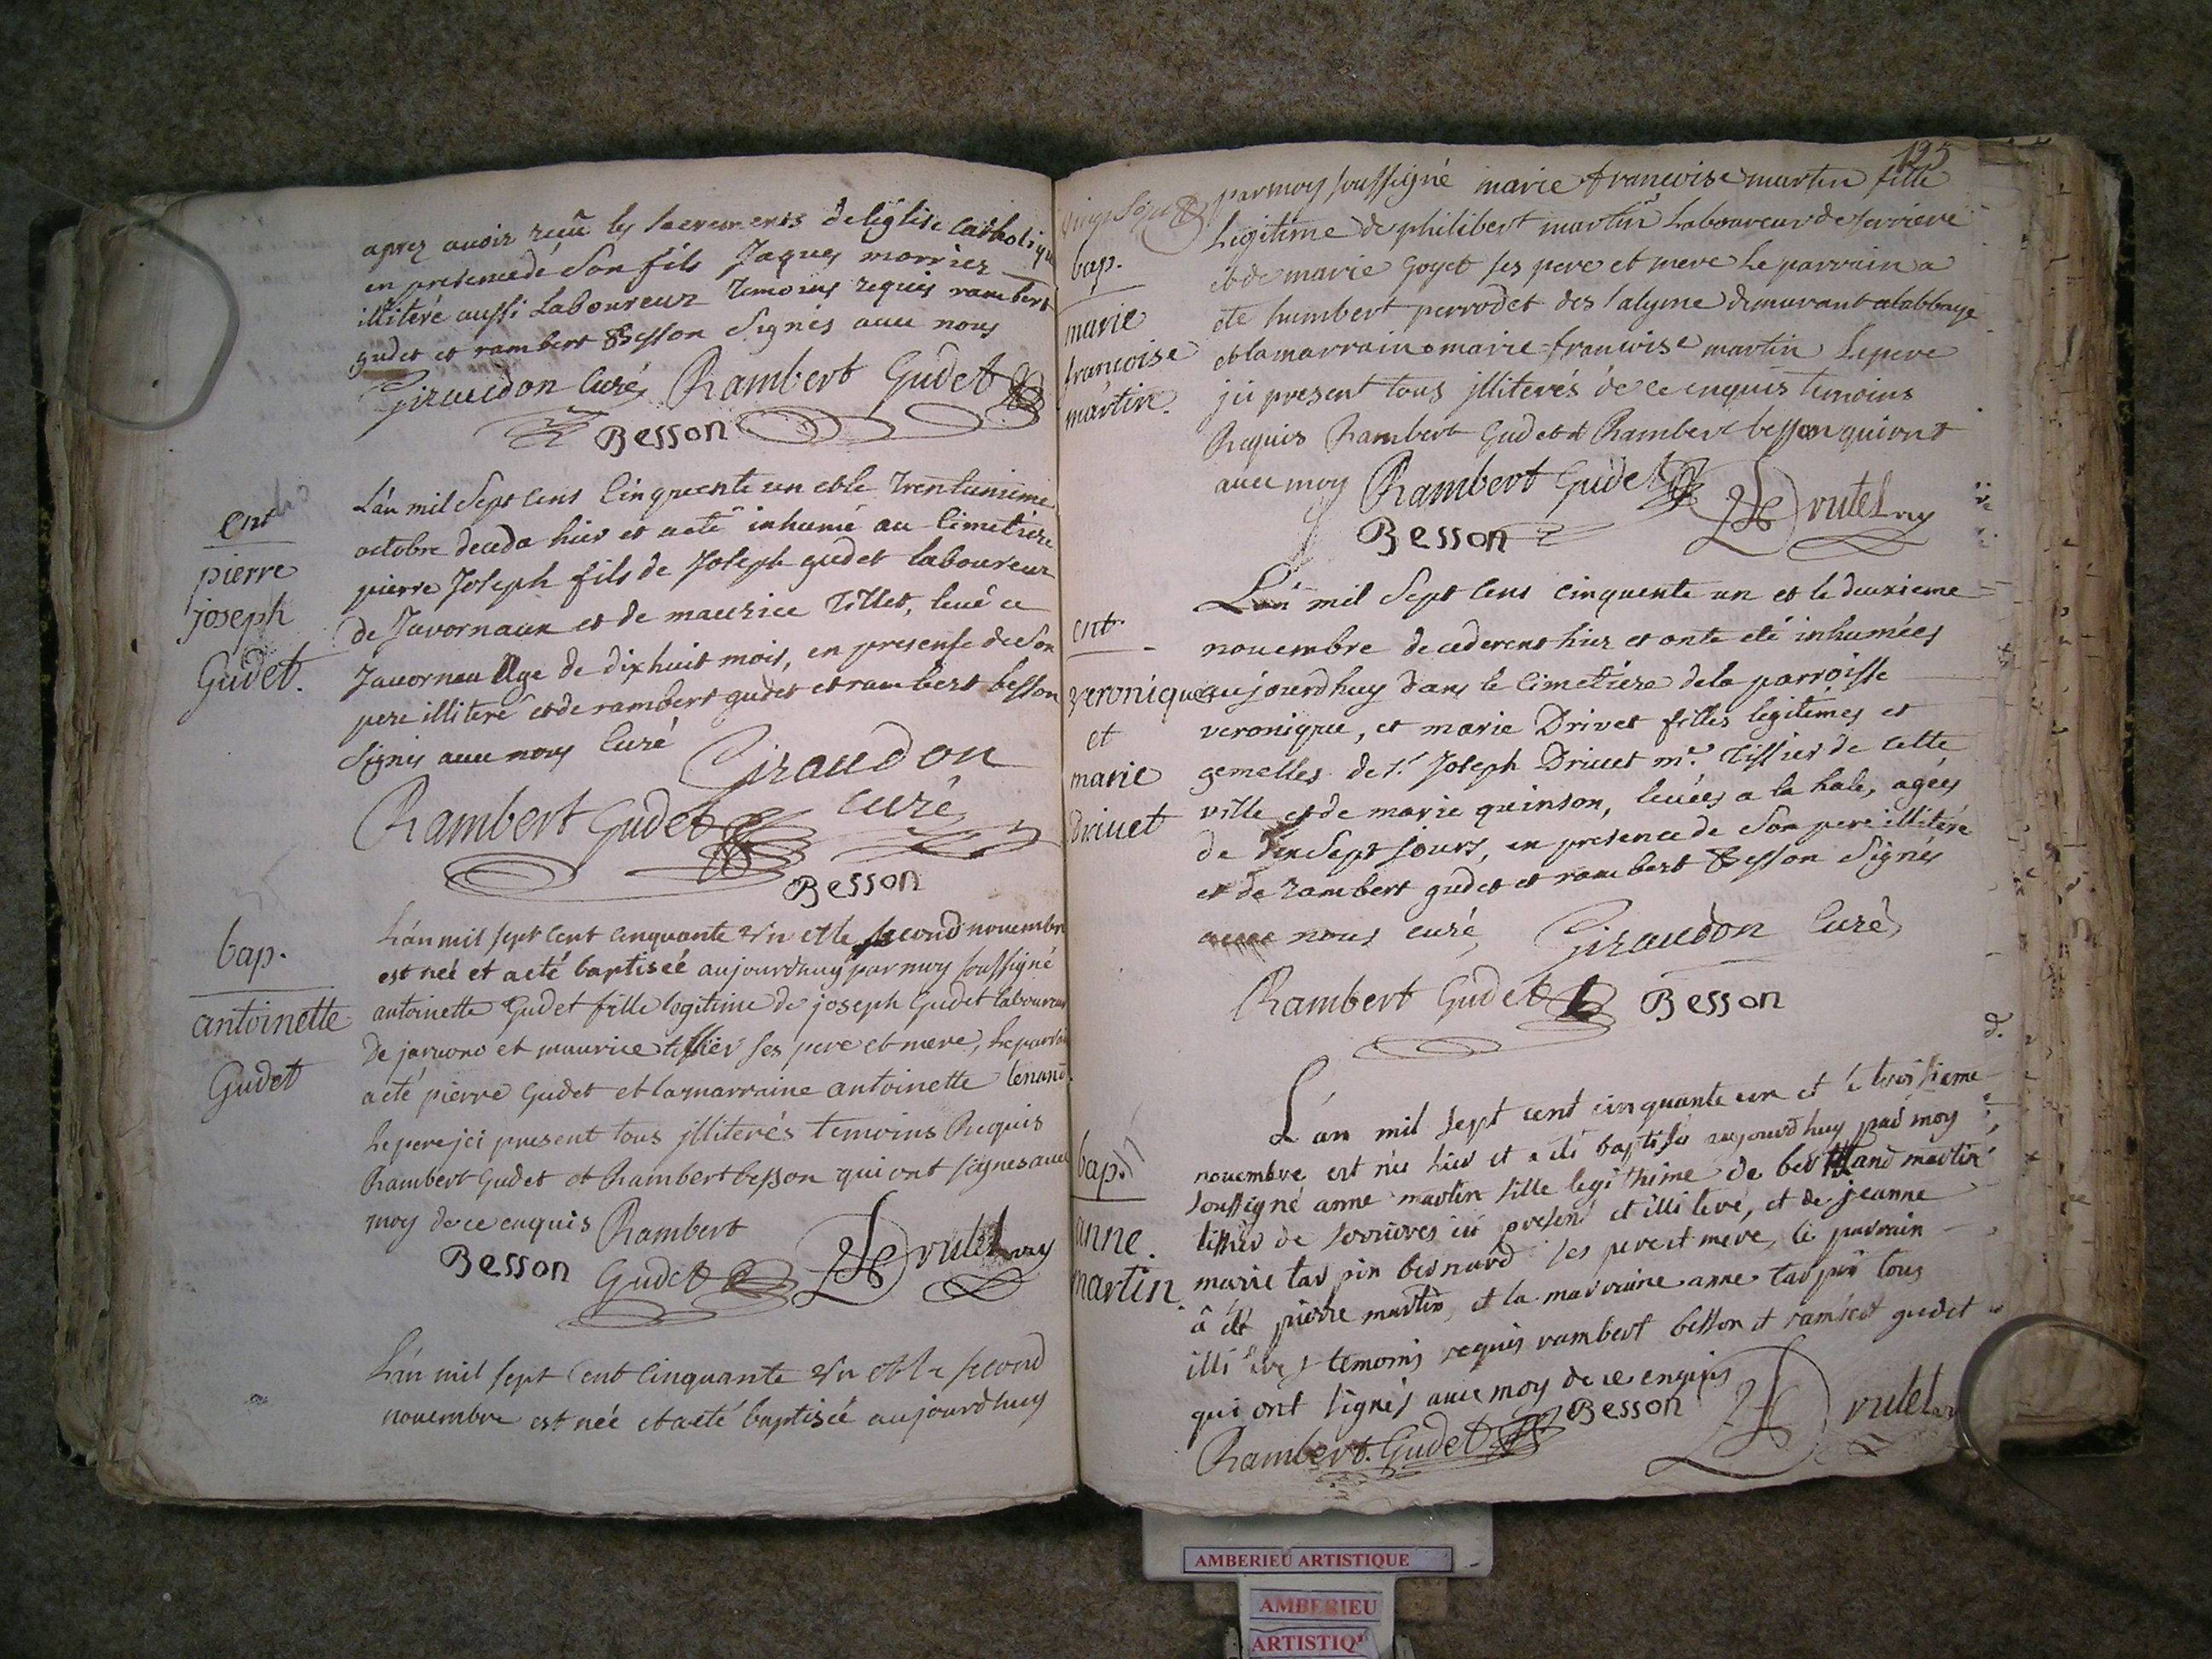 aprez avoir reçu les sacrements de leglise catholique
en presence de son fils Jaques morriez
illiteré aussi Laboureur temoins requis rambert
gudet et rambert Besson signés avec nous
Giraudon Curé Rambert Gudet
Besson
ent
pierre
joseph
Gudet.
L'an mil sept cens cinquente un et le trentunieme
octobre deceda hier et a eté inhumé au cimetiere
pierre Joseph fils de Joseph gudet laboureur
de Javornaux et de maurice tillet, levé a
Javornau age de dix huit mois, en presense de son
pere illiteré et de rambert gudet et rambert besson
signés avec nous Curé Giraudon
curé
Rambert Gudet
Besson
bap.
antoinette
Gudet
L'an mil sept cent cinquante un et le second novembre
est neé et a eté baptiseé aujourdhuy par moy soussigné
antoinette Gudet fille legitime de joseph Gudet laboureur
de et maurice tissier ses pere et mere, le parrain
a eté pierre Gudet et la marraine antoinette
le pere jci present tous jlliterés temoins Requis
Rambert Gudet et Rambert besson qui ont signes avec
moy de ce enquis Rambert
Besson Gudet Drutel
L'an mil sept cent cinquante un et le second
novembre est née et a eté baptisée aujourdhuy
125
bap.
marie
francoise
martin.
par moy soussigné marie francoise martin fille
legitime de philibert martin Laboureur de serriere
et de marie goyet ses pere et mere le parrain a
ete humbert perrodet des alyme demeurant alabbaye
et la marraine marie francoise martin Le pere
jci present tous jlliterés de ce enquis temoins
Requis Rambert Gudet et Rambert besson qui ont
avec moy Rambert Gudet Drutel
Besson
ent.
veronique
et
marie
Drivet
L'an mil sept cens cinquente un et le deuxieme
novembre decederent hier et onte eté inhumées
aujourdhuy dans le cimetiere de la parroisse
veronique, et marie Drivet filles legitimes et
gemelles de Sr. Joseph Drivet mr. tissier de cette
ville et de marie quinson, levées a la hale, agées
de dix sept jours, en presence de son pere illiteré
et de rambert gudet et rambert Besson signés
avec nous curé Giraudon Curé
Rambert Gudet Besson
bap.
anne.
martin
L'an mil sept cent cinquante un et le troisieme
novembre est née hier et a eté baptisée aujourdhuy par moy
soussigné anne martin fille legithime de bertrand martin
tissier de serrieres ici present et illiteré, et de jeanne
marie tarpin bernard ses pere et mere, le parrain
a eté pierre martin, et la marraine anne tarpin tous
illiteres temoins requis rambert besson et rambert gudet
qui ont signés avec moy de ce enquis
Rambert Gudet Besson Drutel
AMBERIEU ARTISTIQUE
AMBERIEU
ARTISTIQ